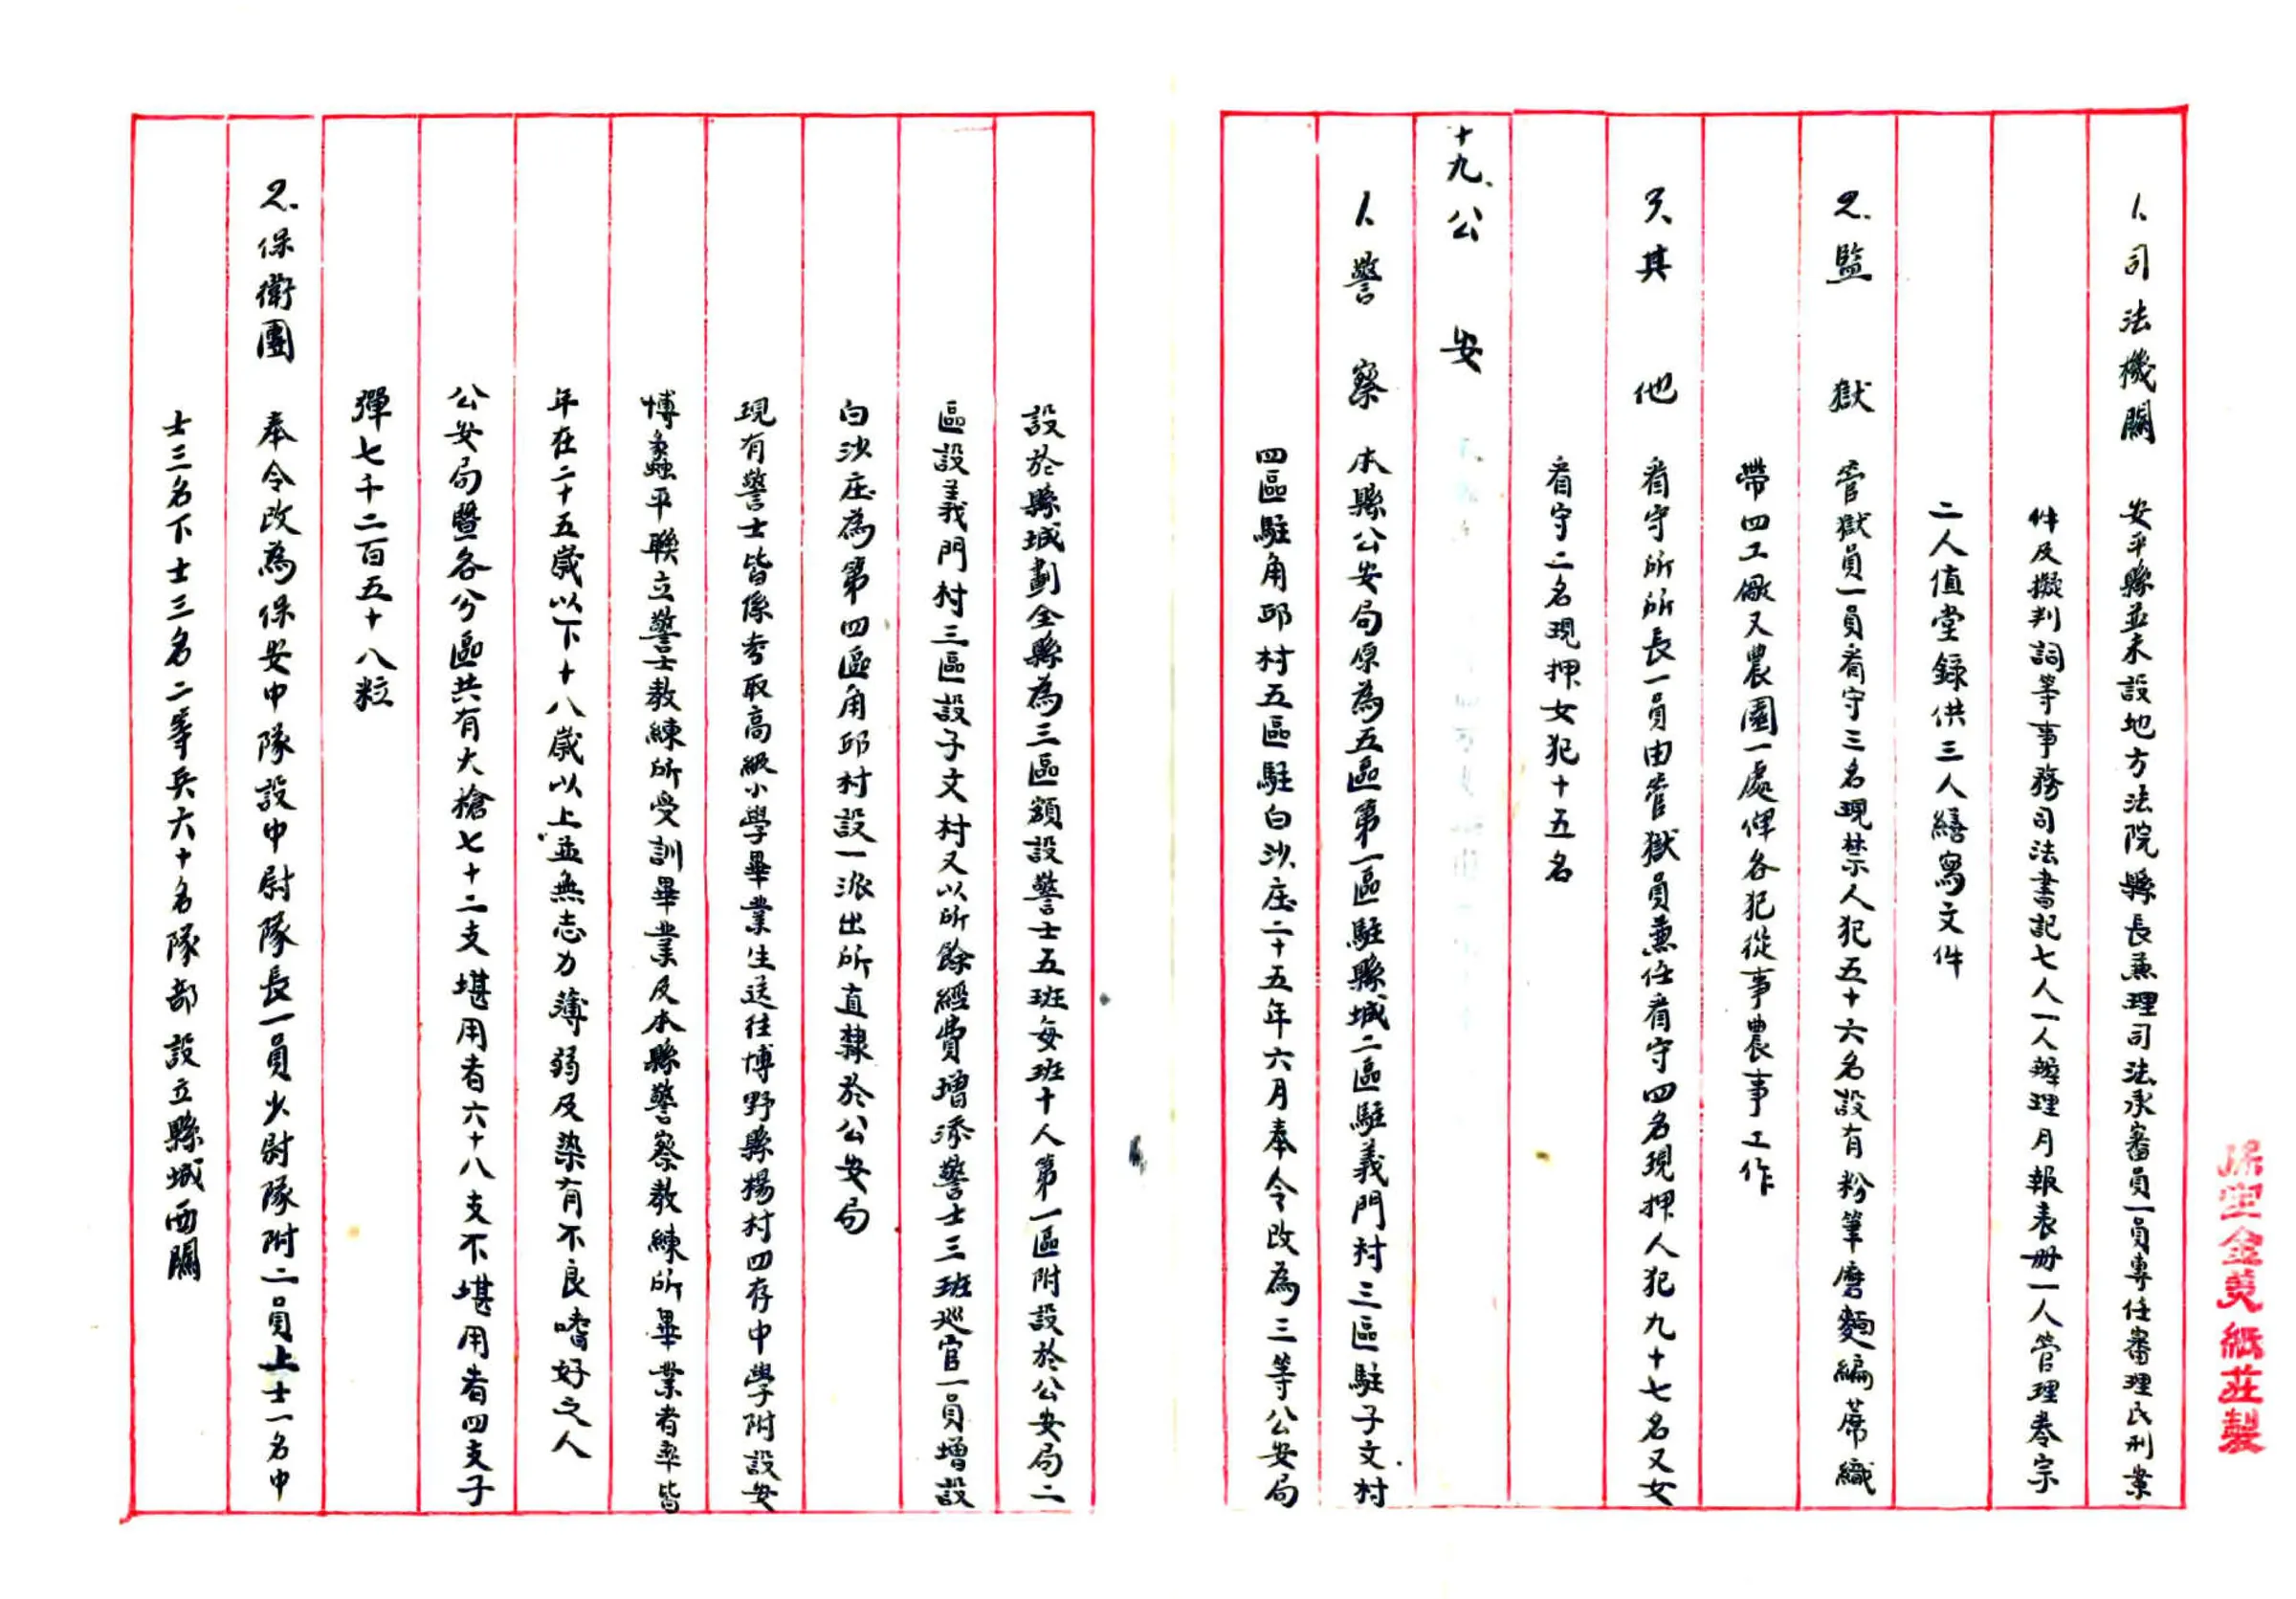 1、司法機關 安平縣並未設地方法院縣長兼理司法承審員一員專任審理民刑案
件及擬判詞等事務司法書記七人一人辦理月報表册一人管理卷宗
二人值堂錄供三人繕寫文件
2.監獄 管獄員一員看守三名現禁人犯五十六名設有粉筆磨麵編蓆織
帶四工廠又農園一處俾各犯從事農事工作
3、其他 看守所所長一員由管獄員兼任看守四名現押人犯九十七名又女
看守二名現押女犯十五名
十九、公安
1、警察 本縣公安局原為五區第一區駐縣城二區駐義門村三區駐子文村
四區駐角邱村五區駐白沙庄二十五年六月奉令改為三等公安局
設於縣城劃全縣為三區額設警士五班每班十人第一區附設於公安局二
區設義門村三區設子文村又以所餘經費增添警士三班巡官一員增設
白沙庄為第四區角邱村設一派出所直隸於公安局
現有警士皆係考取高級小學畢業生送往博野縣楊村四存中學附設安
博蠡平聯立警士教練所受訓畢業及本縣警察教練所畢業者率皆
年在二十五歲以下十八歲以上並無志力薄弱及染有不良嗜好之人
公安局暨各分區共有大槍七十二支堪用者六十八支不堪用者四支子
彈七千二百五十八粒
2.保衛團 奉令改為保安中隊設中尉隊長一員少尉隊附二員上士一名中
士三名下士三名二等兵六十名隊部設立縣城西關
金美紙莊製